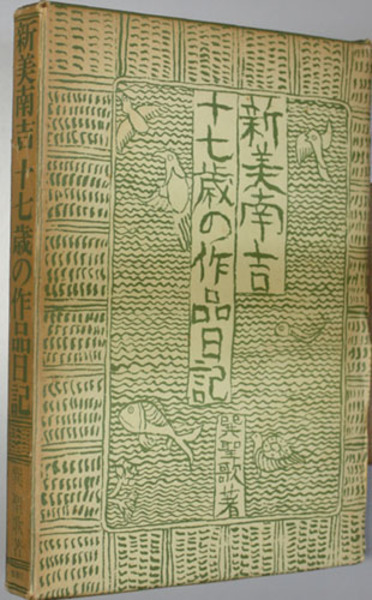 新美南吉
十七歳の作品日記
巽聖歌著
新美南吉 十七歳の作品日記
巽聖歌著